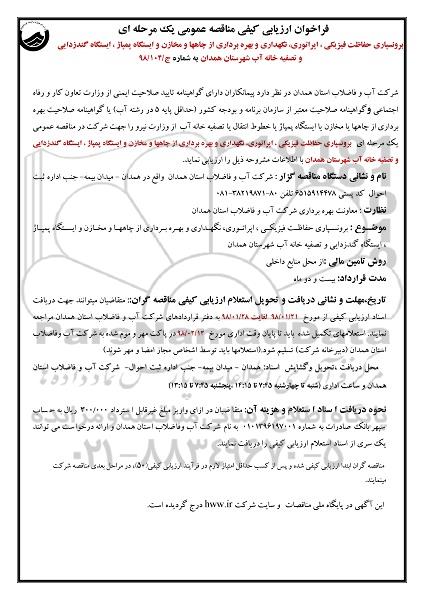 فراخوان ارزیابی کیفی مناقصه عمومی یک مرحله ای
برونسپاری حفاظت فیزیکی ، اپراتوری، نگهداری و بهره برداری از چاهها و مخازن و ایستگاه پمپاژ ، ایستگاه گندزدایی
و تصفیه خانه آب شهرستان همدان به شماره ج/98/102
شرکت آب و فاضلاب استان همدان در نظر دارد پیمانکاران دارای گواهینامه تایید صلاحیت ایمنی از وزارت تعاون کار و رفاه
اجتماعی و گواهینامه صلاحیت معتبر از سازمان برنامه و بودجه کشور (حداقل پایه 5 در رشته آب) یا گواهینامه صلاحیت بهره
برداری از چاهها یا مخازن یا ایستگاه پمپاژ یا خطوط انتقال یا تصفیه خانه آب از وزارت نیرو را جهت شرکت در مناقصه عمومی
یک مرحله ای برونسپاری حفاظت فیزیکی ، اپراتوری، نگهداری و بهره برداری از چاهها و مخازن و ایستگاه پمپاژ ، ایستگاه گندزدایی
و تصفیه خانه آب شهرستان همدان با اطلاعات مشروحه ذیل را ارزیابی نماید.
نام و نشانی دستگاه مناقصه گزار : شرکت آب و فاضلاب استان همدان واقع در همدان - میدان بیمه- جنب اداره ثبت
احوال کد پستی 6515914478 تلفن 80-38219871-081
نظارت : معاونت بهره برداری شرکت آب و فاضلاب استان همدان
موضـوع : برونسـپاری حفاظـت فیزیکـی ، اپراتـوری، نگهـداری و بهـره بـرداری از چاههـا و مخـازن و ایسـتگاه پمپـاژ
، ایستگاه گندزدایی و تصفیه خانه آب شهرستان همدان
روش تامین مالی : از محل منابع داخلی
مدت قرارداد: بیست و دو ماه
تاریخ،مهلت و نشانی دریافت و تحویل استعلام ارزیابی کیفی مناقصه گران: متقاضیان میتوانند جهت دریافت
اسناد ارزیابی کیفی از مورخ 98/01/21 لغایت 98/01/28 به دفتر قراردادهای شرکت آب و فاضلاب استان همدان مراجعه
نمایند. استعلامهای تکمیل شده باید تا پایان وقت اداری مورخ 98/02/12 در پاکت مهر و موم شده به شرکت آب وفاضلاب
استان همدان (دبیرخانه شرکت) تسلیم شود.(استعلامها باید توسط اشخاص مجاز امضا و مهر شوند)
محل دریافت ،تحویل وگشایش اسناد: همدان - میدان بیمه- جنب اداره ثبت احوال- شرکت آب و فاضلاب استان
همدان و ساعت اداری (شنبه تا چهارشنبه 7:45 تا 14:15 ،پنجشنبه 7:45 تا 13:15)
نحوه دریافت اسناد استعلام و هزینه آن: متقاضیان در ازای واریز مبلغ غیرقابل استرداد 300/000 ریال به حساب
سپهر بانک صادرات به شماره 0101396197001 به نام شرکت آب وفاضلاب استان همدان و ارائه درخواست می توانند
یک سری از اسناد استعلام ارزیابی کیفی را دریافت نمایند.
مناقصه گران ابتدا ارزیابی کیفی شده و پس از کسب حداقل امتیاز لازم در فرآیند ارزیابی کیفی(50)، در مراحل بعدی مناقصه شرکت
مینمایند.
این آگهی در پایگاه ملی مناقصات و سایت شرکت hww.ir درج گردیده است.
021-88349670-5